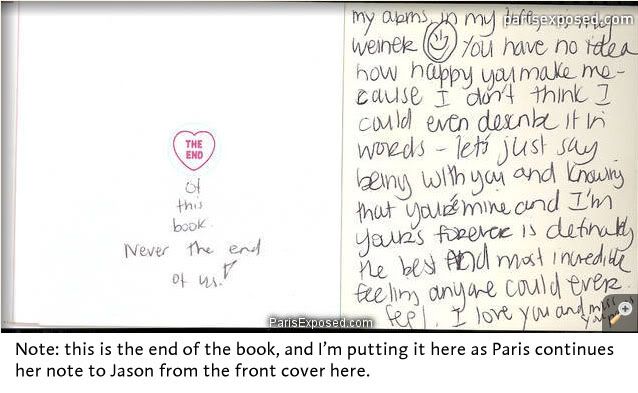 THE
END
of
this
book.
Never the end
of us.
my arms, in my
weiner You have no idea
how happy you make me -
cause I don't think I
could even describe it in
words - let's just say
being with you and knowing
that you're mine and I'm
yours forever is definatly
the best and most incredible
feeling anyone could ever
feel. I love you and miss
parisexposed.com
ParisExposed.com
Note: this is the end of the book, and I'm putting it here as Paris continues
her note to Jason from the front cover here.